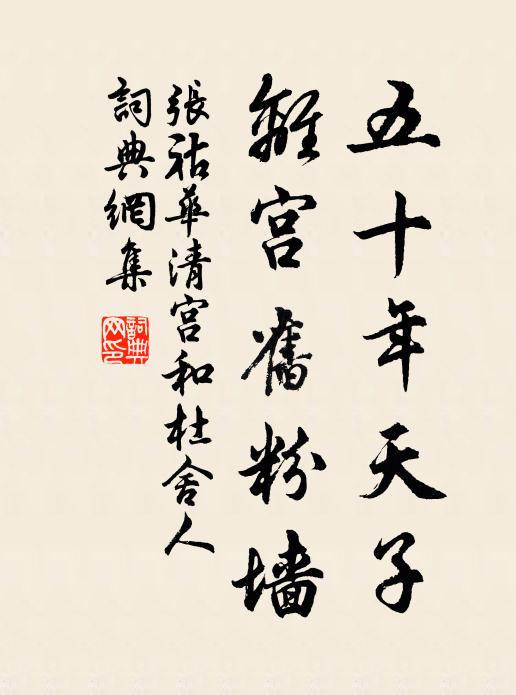 五十年天子
離宮舊粉墻
張祜華清宮和杜舍人
詞典網集
詞典网印